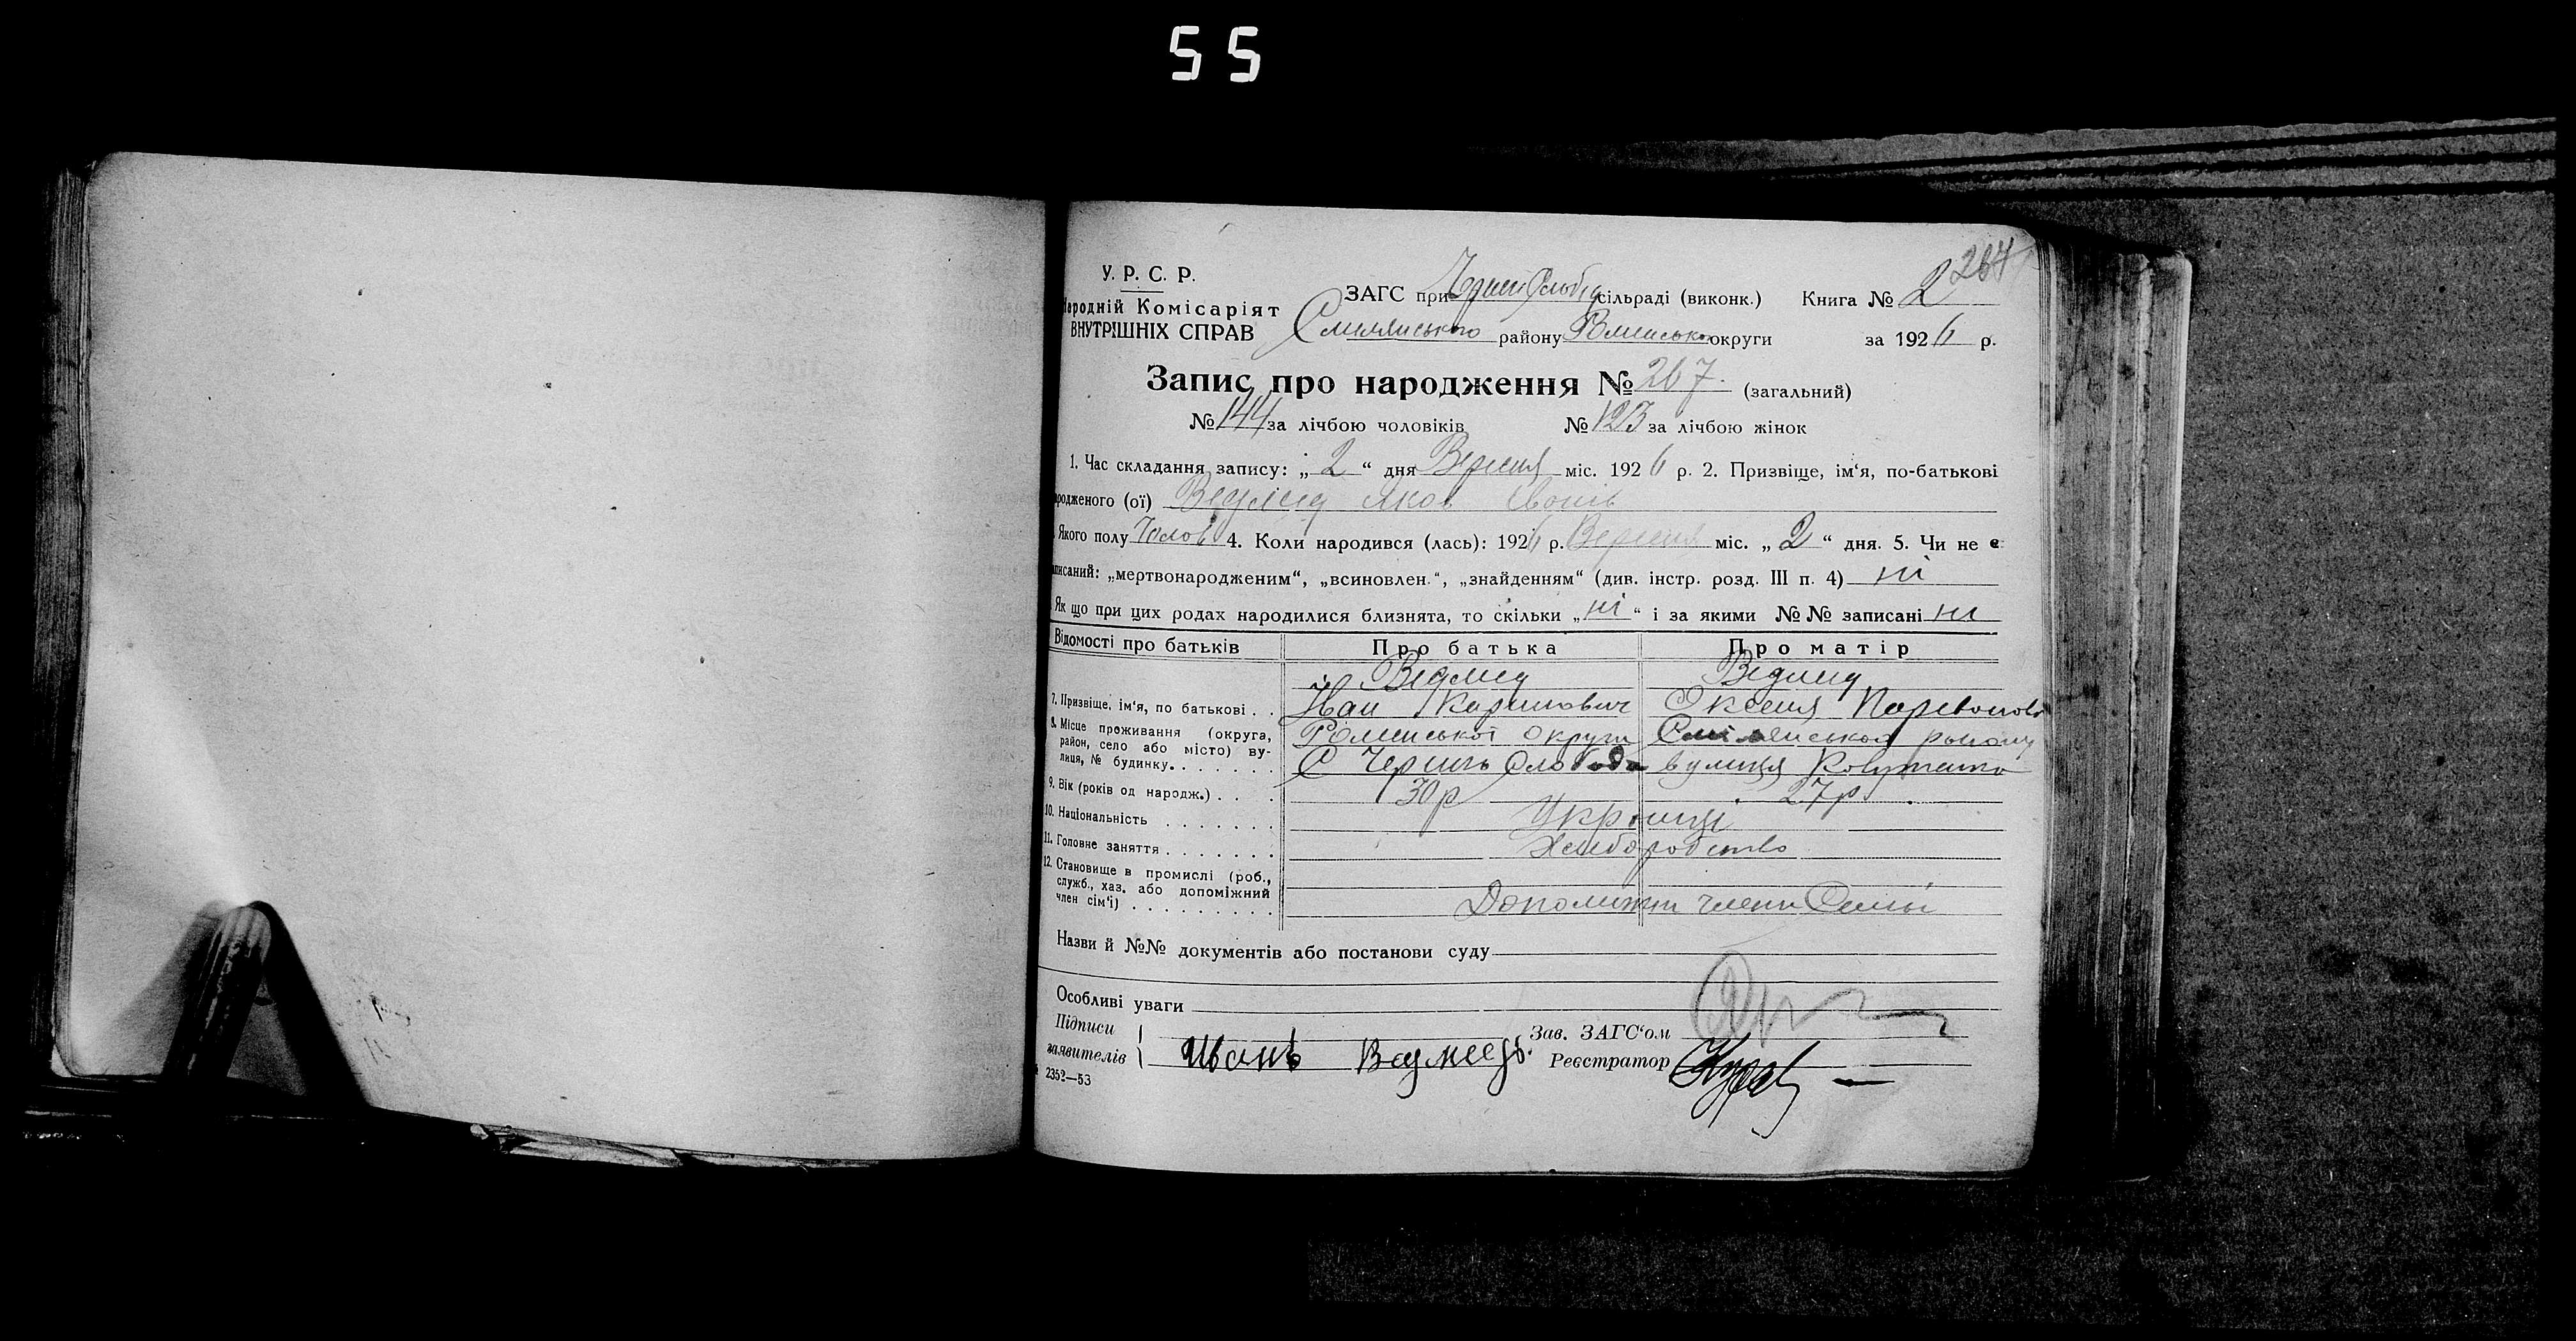 55
264
У. Р. С. Р.
Народній Комісаріят
ВНУТРІШНІХ СПРАВ
ЗАГС при сільраді (виконк.) Книга № 2
Смилянського району Роменсько округи за 1926 р.
Запис про народження № 267. (загальний)
№ 144 за лічбою чоловіків № 123 за лічбою жінок
1. Час складання запису: „ 2 “ дня Вересня міс. 1926 р. 2. Призвіще, ім‘я, по-батькові
родженого (ої) Ведмед Яков Іванів
Якого полу Чолов 4. Коли народився (лась): 1926 р. Вересня міс. „ 2 “ дня. 5. Чи не є
писаний: „мертвонародженим“, „всиновлен.“, „знайденням“ (див. інстр. розд. III п. 4) ні
Як що при цих родах народилися близнята, то скільки „ ні “ і за якими №№ записані ні
Відомості про батьків Про батька Про матір
Ведмед Ведмед
7. Призвіще, ім‘я, по батькові . . Іван Карпович Оксеня
8. Місце проживання (округа, район, село або місто) вулиця, № будинку. . . . . . . Роменської округи Смілянського району
С Чернеча Слобода вулиця
9. Вік (років од народж.) . . . 30р 27р
10. Національність . . . . . . . Українці
11. Головне заняття . . . . . . . Хлиборобство
12. Становище в промислі (роб.,
служб., хаз. або допоміжний
член сім‘ї) . . . . . . . . . . Допоміжни члени Семьї
Назви й №№ документів або постанови суду
Особливі уваги
Підписи
заявителів Иванъ Ведмедь. Зав. ЗАГС‘ом
Реєстратор
2352—53